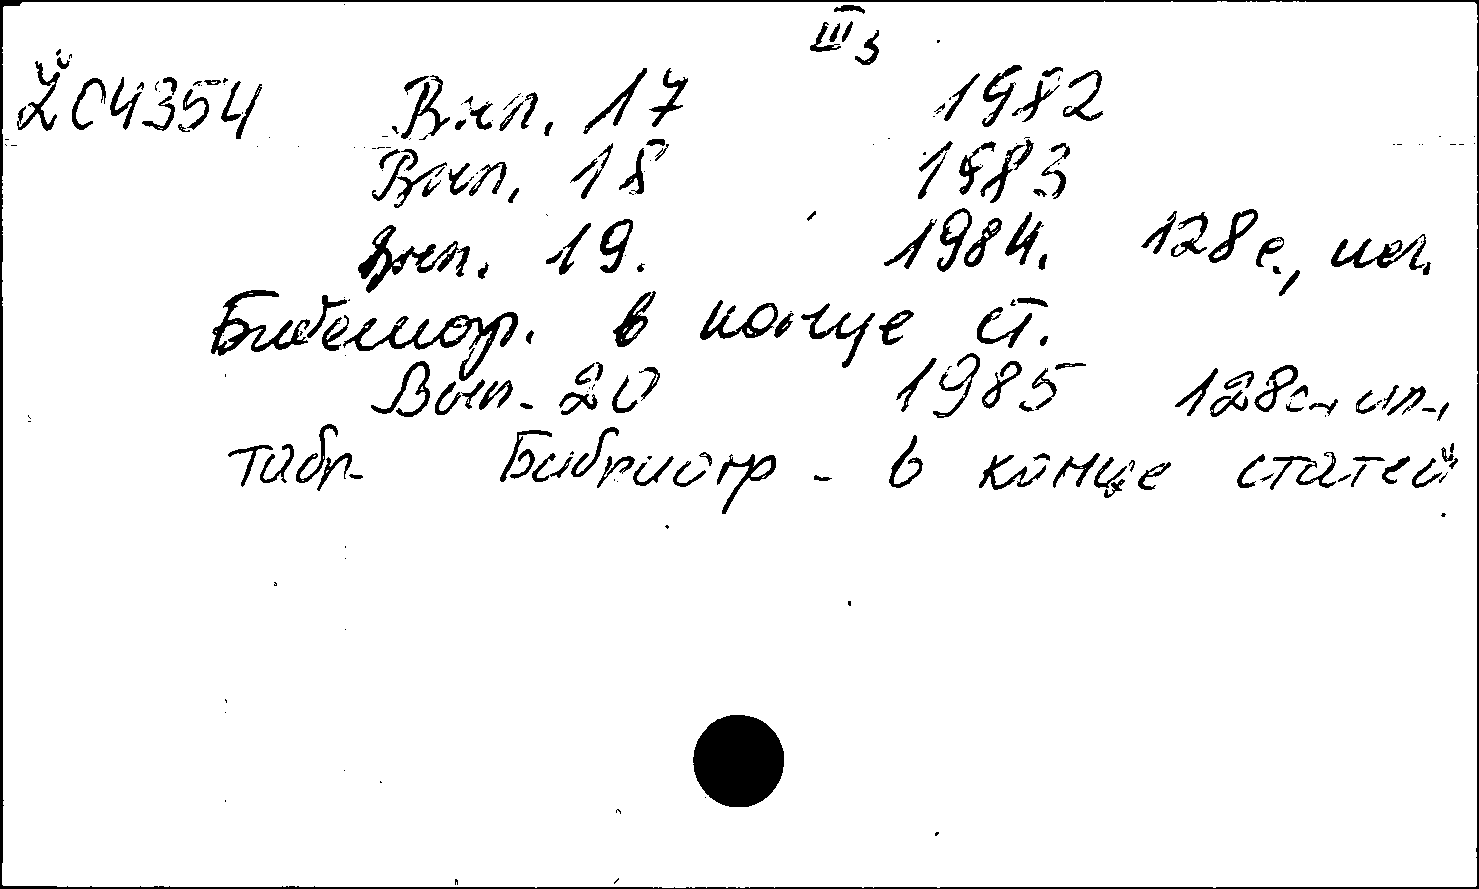 III 3
Z̈C4354 Вып. 17 1982
Вып. 18 1983
Вып. 19. 1984. 128 с., ил.
Библиогр. в конце ст.
Вып. 20 1985 128с., ил.,
табл. Библиогр. в конце статей